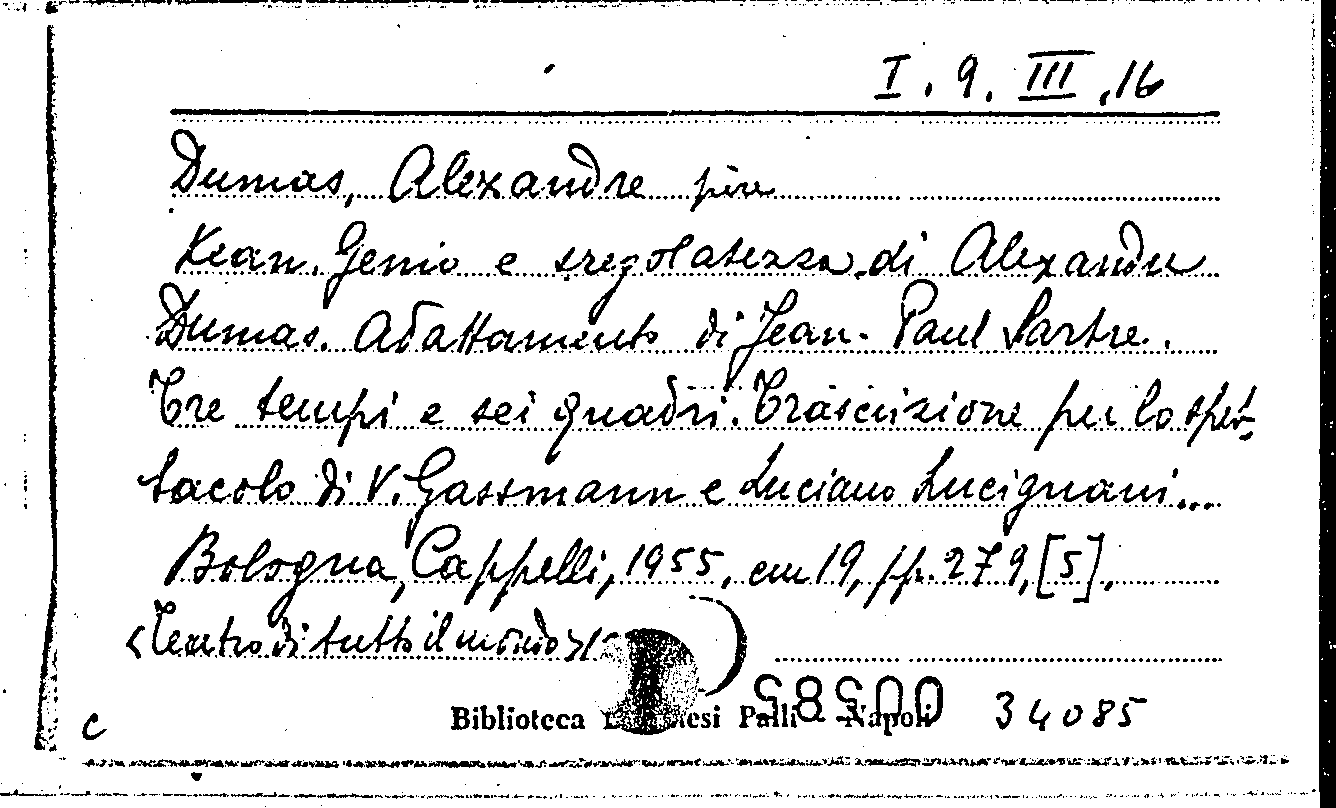 I. 9. III. 16
Dumas, Alexandre père
Kean. Genio e sregolatezza di Alexandre
Dumas. Adattamento di Jean-Paul Sartre.
Tre tempi e sei quadri. Trascrizione per lo spet-
tacolo di V. Gassmann e Luciano Lucignani...
Bologna, Cappelli, 1955, cm 19, pp. 279, [5].
<Teatro di tutto il mondo
Biblioteca Palli - Napoli 34085
C